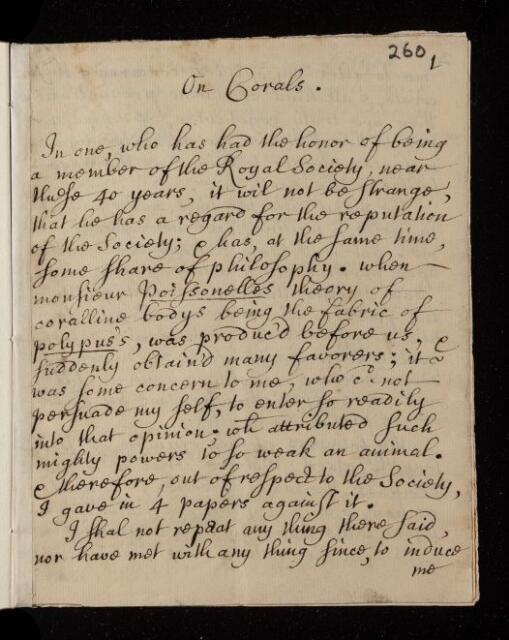 260 1
On Corals.
In one, who has had the honor of being
a member of the Royal Society, near
these 40 years, it wil not be strange,
that he has a regard for the reputation
of the Society; & has, at the same time,
some share of philosophy. when
monsieur Poissonelles theory of
coralline bodys being the fabric of
polypus's, was produc'd before us, &
suddenly obtain'd many favorers; it
was some concern to me, who cd. not
persuade my self, to enter so readily
into that opinion; wh. attributed such
mighty powers to so weak an animal.
& therefore, out of respect to the Society,
I gave in 4 papers against it.
I shal not repeat any thing there said,
nor have met with any thing since, to induce
me